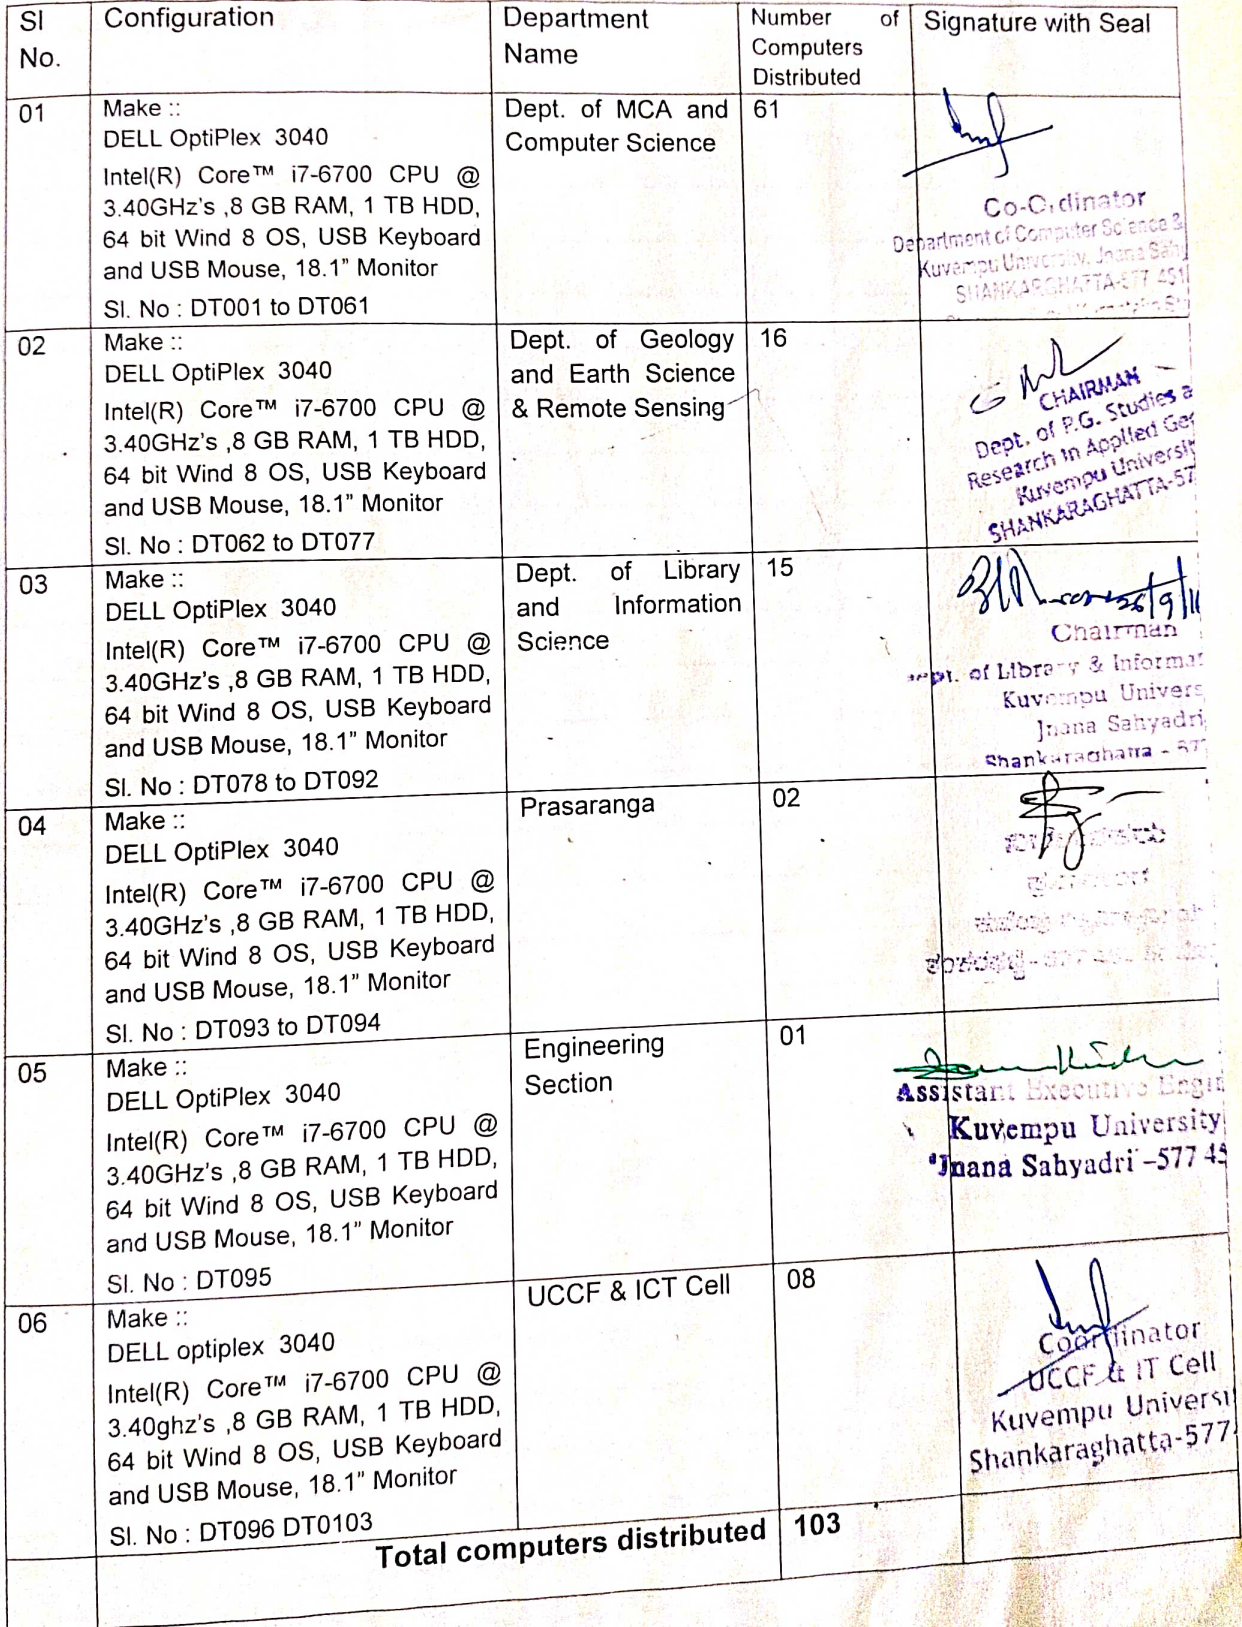 Sl
No.
Configuration
Department
Name
Number of
Computers
Distributed
Signature with Seal
01
Make ::
DELL OptiPlex 3040
Intel(R) Core™ i7-6700 CPU @
3.40GHz's ,8 GB RAM, 1 TB HDD,
64 bit Wind 8 OS, USB Keyboard
and USB Mouse, 18.1" Monitor
Sl. No : DT001 to DT061
Dept. of MCA and
Computer Science
61
Co-Ordinator
Department of Computer Science &
Kuvempu University, Jnana Sahy
SHANKARGHATTA-577 451
02
Make ::
DELL OptiPlex 3040
Intel(R) Core™ i7-6700 CPU @
3.40GHz's ,8 GB RAM, 1 TB HDD,
64 bit Wind 8 OS, USB Keyboard
and USB Mouse, 18.1" Monitor
Sl. No : DT062 to DT077
Dept. of Geology
and Earth Science
& Remote Sensing
16
CHAIRMAN
Dept. of P.G. Studies a
Research in Applied Geo
Kuvempu Universit
SHANKARAGHATTA-57
03
Make ::
DELL OptiPlex 3040
Intel(R) Core™ i7-6700 CPU @
3.40GHz's ,8 GB RAM, 1 TB HDD,
64 bit Wind 8 OS, USB Keyboard
and USB Mouse, 18.1" Monitor
Sl. No : DT078 to DT092
Dept. of Library
and Information
Science
15
26/9/16
Chairman
Dept. of Library & Informat
Kuvempu Univers
Jnana Sahyadri
Shankaraghatta - 577
04
Make ::
DELL OptiPlex 3040
Intel(R) Core™ i7-6700 CPU @
3.40GHz's ,8 GB RAM, 1 TB HDD,
64 bit Wind 8 OS, USB Keyboard
and USB Mouse, 18.1" Monitor
Sl. No : DT093 to DT094
Prasaranga
02
05
Make ::
DELL OptiPlex 3040
Intel(R) Core™ i7-6700 CPU @
3.40GHz's ,8 GB RAM, 1 TB HDD,
64 bit Wind 8 OS, USB Keyboard
and USB Mouse, 18.1" Monitor
Sl. No : DT095
Engineering
Section
01
Assistant Executive Engin
Kuvempu University
"Jnana Sahyadri -577 45
06
Make ::
DELL optiplex 3040
Intel(R) Core™ i7-6700 CPU @
3.40ghz's ,8 GB RAM, 1 TB HDD,
64 bit Wind 8 OS, USB Keyboard
and USB Mouse, 18.1" Monitor
Sl. No : DT096 DT0103
UCCF & ICT Cell
08
Coordinator
UCCF & IT Cell
Kuvempu Universi
Shankaraghatta-577
Total computers distributed
103